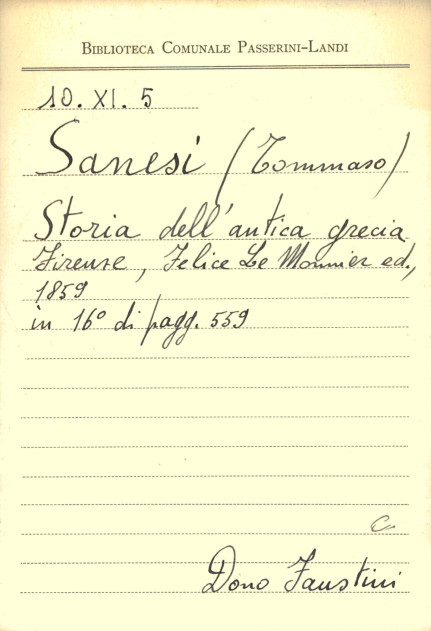 BIBLIOTECA COMUNALE PASSERINI-LANDI
10. XI. 5
Sanesi (Tommaso)
Storia dell'antica grecia
Firenze, Felice Le Monnier ed.,
1859
in 16º di pagg. 559
Dono Faustini